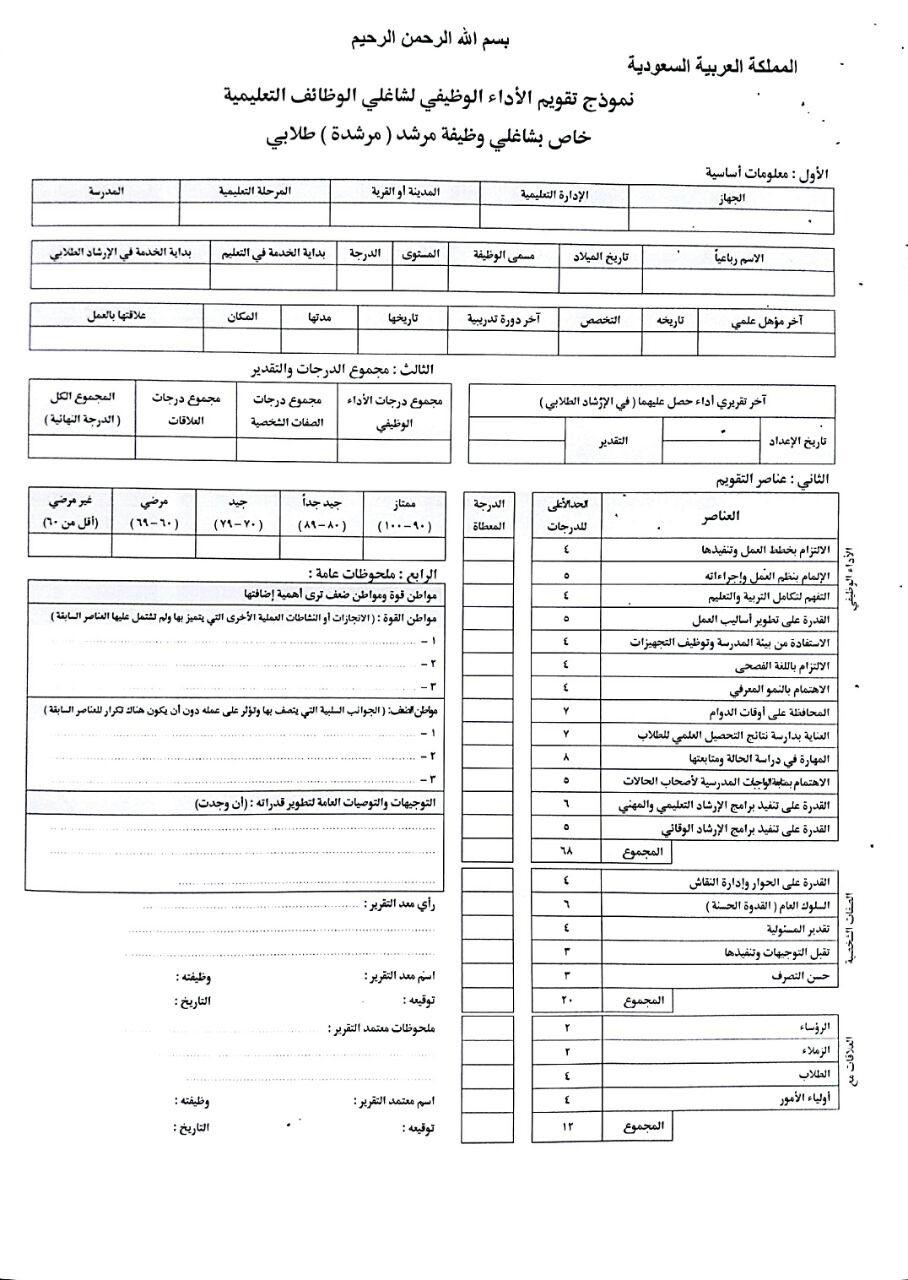 بسم الله الرحمن الرحيم
المملكة العربية السعودية
نموذج تقويم الأداء الوظيفي لشاغلي الوظائف التعليمية
خاص بشاغلي وظيفة مرشد ( مرشدة ) طلابي
الأول : معلومات أساسية
الجهاز الإدارة التعليمية المدينة أو القرية المرحلة التعليمية المدرسة
الاسم رباعياً تاريخ الميلاد مسمى الوظيفة المستوى الدرجة بداية الخدمة في التعليم بداية الخدمة في الإرشاد الطلابي
آخر مؤهل علمي تاريخه التخصص آخر دورة تدريبية تاريخها مدتها المكان علاقتها بالعمل
آخر تقريري أداء حصل عليهما ( في الإرشاد الطلابي )
تاريخ الإعداد التقدير
الثاني : عناصر التقويم
العناصر الحد الأعلى للدرجات الدرجة المعطاة
الأداء الوظيفي
الالتزام بخطط العمل وتنفيذها ٤
الإلمام بنظم العمل وإجراءاته ٥
التفهم لتكامل التربية والتعليم ٤
القدرة على تطوير أساليب العمل ٥
الاستفادة من بيئة المدرسة وتوظيف التجهيزات ٤
الالتزام باللغة الفصحى ٤
الاهتمام بالنمو المعرفي ٤
المحافظة على أوقات الدوام ٧
العناية بدارسة نتائج التحصيل العلمي للطلاب ٧
المهارة في دراسة الحالة ومتابعتها ٨
الاهتمام بمتابعة الواجبات المدرسية لأصحاب الحالات ٥
القدرة على تنفيد برامج الإرشاد التعليمي والمهني ٦
القدرة على تنفيد برامج الإرشاد الوقائي ٥
المجموع ٦٨
الصفات الشخصية
القدرة على الحوار وإدارة النقاش ٤
السلوك العام ( القدوة الحسنة ) ٦
تقدير المسئولية ٤
تقبل التوجيهات وتنفيذها ٣
حسن التصرف ٣
المجموع ٢٠
العلاقات مع
الرؤساء ٢
الزملاء ٢
الطلاب ٤
أولياء الأمور ٤
المجموع ١٢
الثالث : مجموع الدرجات والتقدير
مجموع درجات الأداء الوظيفي مجموع درجات الصفات الشخصية مجموع درجات العلاقات المجموع الكل ( الدرجة النهائية )
ممتاز (٩٠-١٠٠) جيد جداً (٨٠-٨٩) جيد (٧٠-٧٩) مرضي (٦٠-٦٩) غير مرضي (أقل من ٦٠)
الرابع : ملحوظات عامة :
مواطن قوة ومواطن ضعف ترى أهمية إضافتها
مواطن القوة : ( الانجازات أو النشاطات العملية الأخرى التي يتميز بها ولم تشتمل عليها العناصر السابقة )
١ -
٢ -
٣ -
مواطن الضعف: ( الجوانب السلبية التي يتصف بها وتؤثر على عمله دون أن يكون هناك تكرار للعناصر السابقة )
١ -
٢ -
٣ -
التوجيهات والتوصيات العامة لتطوير قدراته : (أن وجدت)
رأي معد التقرير :
اسم معد التقرير : وظيفته :
توقيعه : التاريخ :
ملحوظات معتمد التقرير :
اسم معتمد التقرير : وظيفته :
توقيعه : التاريخ :